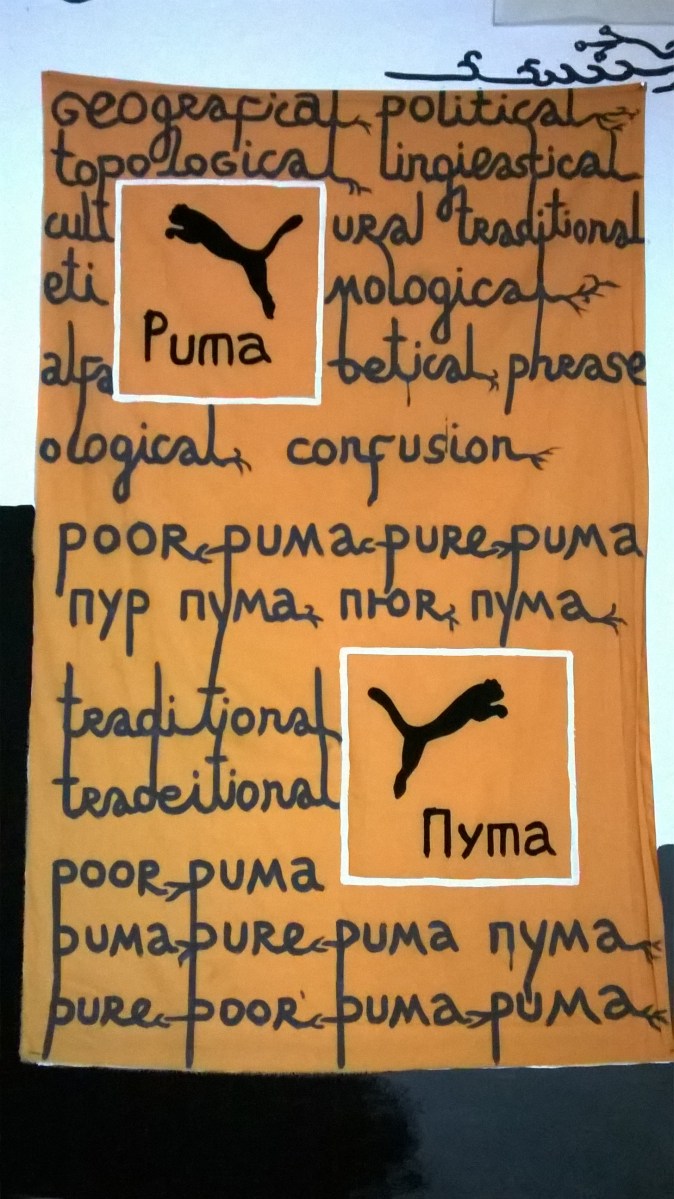 Geografical political
topological lingieastical
cultural traditional
etimological
alfabetical phrase
ological confusion
Puma
poor puma pure puma
пур пума пюR пума
traditional
tradeitional
Пута
poor puma
puma pure puma пума
pure poor puma puma